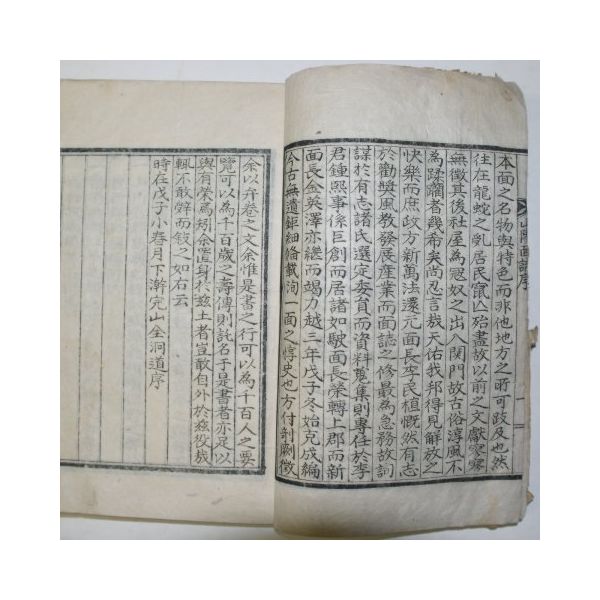 本面之名物與特色而非他地方之所可跂及也然
往在龍蛇之乳居民竄亾殆盡故以前之文獻寥寥
無徵其後社屋為冠奴之出入関門故古俗淳風不
為蹂躪者幾希矣尚忍言㢤天佑我邦得見解放之
快樂而庶政方新萬法還元面長李民植慨然有志
於勸奬風教發展產業而面誌之修最為急務故詞
謀於有志諸氏選定委員而資料蒐集則專任於李
君鍾熙事係巨創而居諸如駛面長榮轉上郡而新
面長金英澤亦繼而竭力越三年戊子冬始克成編
今古無遺鉅細俻載洵一面之惇史也方付剞劂徵
余以弁卷之文余惟是書之行可以為千百人之要
覽可以為千百歲之壽傳則託名于是書者亦足以
與有榮焉矧余置身於玆土者豈敢自外於玆役哉
輒不敢辭而敍之如右云
時在戊子小春月下澣完山全洞道序
面誌序